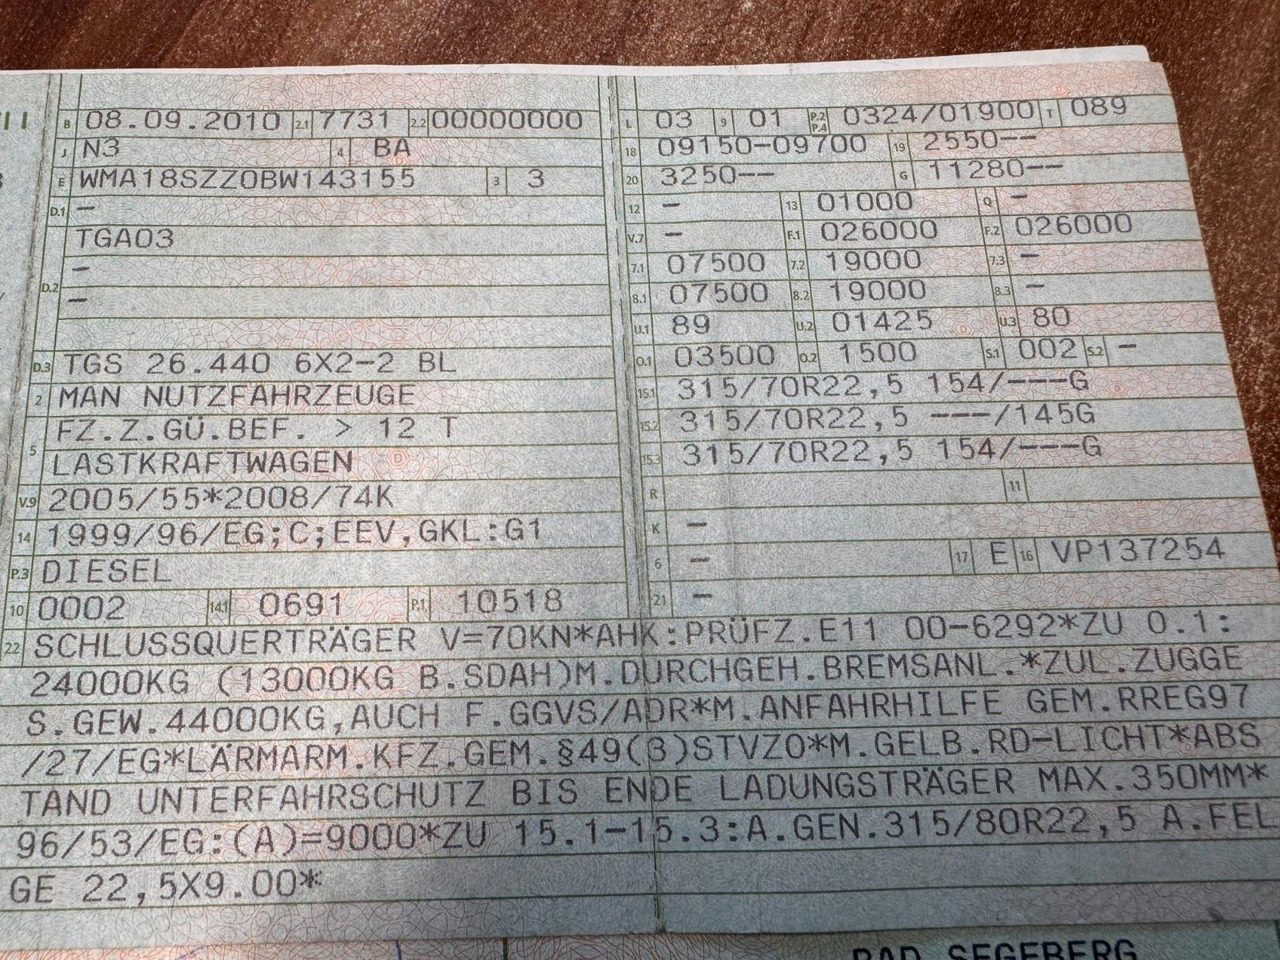 B 08.09.2010 2.1 7731 2.2 00000000
J N3 4 BA
E WMA18SZZ0BW143155 3 3
D.1 –
TGA03
D.2 –
–
D.3 TGS 26.440 6X2-2 BL
2 MAN NUTZFAHRZEUGE
5 FZ.Z.GÜ.BEF. > 12 T
LASTKRAFTWAGEN
V.9 2005/55*2008/74K
14 1999/96/EG;C;EEV,GKL:G1
P.3 DIESEL
10 0002 14.1 0691 P.1 10518
L 03 9 01 P.2 P.4 0324/01900 T 089
18 09150-09700 19 2550--
20 3250-- G 11280--
12 – 13 01000 Q –
V.7 – F.1 026000 F.2 026000
7.1 07500 7.2 19000 7.3 –
8.1 07500 8.2 19000 8.3 –
U.1 89 U.2 01425 U.3 80
O.1 03500 O.2 1500 S.1 002 S.2 –
15.1 315/70R22,5 154/---G
15.2 315/70R22,5 ---/145G
15.3 315/70R22,5 154/---G
R 11
K –
6 – 17 E 16 VP137254
21 –
22 SCHLUSSQUERTRÄGER V=70KN*AHK:PRÜFZ.E11 00-6292*ZU O.1:
24000KG (13000KG B.SDAH)M.DURCHGEH.BREMSANL.*ZUL.ZUGGE
S.GEW.44000KG,AUCH F.GGVS/ADR*M.ANFAHRHILFE GEM.RREG97
/27/EG*LÄRMARM.KFZ.GEM.§49(3)STVZO*M.GELB.RD-LICHT*ABS
TAND UNTERFAHRSCHUTZ BIS ENDE LADUNGSTRÄGER MAX.350MM*
96/53/EG:(A)=9000*ZU 15.1-15.3:A.GEN.315/80R22,5 A.FEL
GE 22,5X9.00*
BAD SEGEBERG